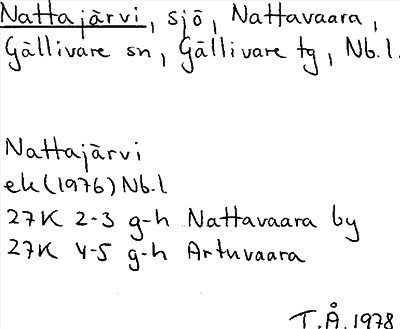 Nattajärvi, sjö, Nattavaara,
Gällivare sn, Gällivare tg, Nb.l.
Nattajärvi
ek (1976) Nb.l
27K 2-3 g-h Nattavaara by
27K 4-5 g-h Artuvaara
T.Å. 1978